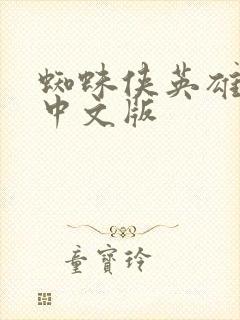 蜘蛛侠英雄
中文版
童寶玲